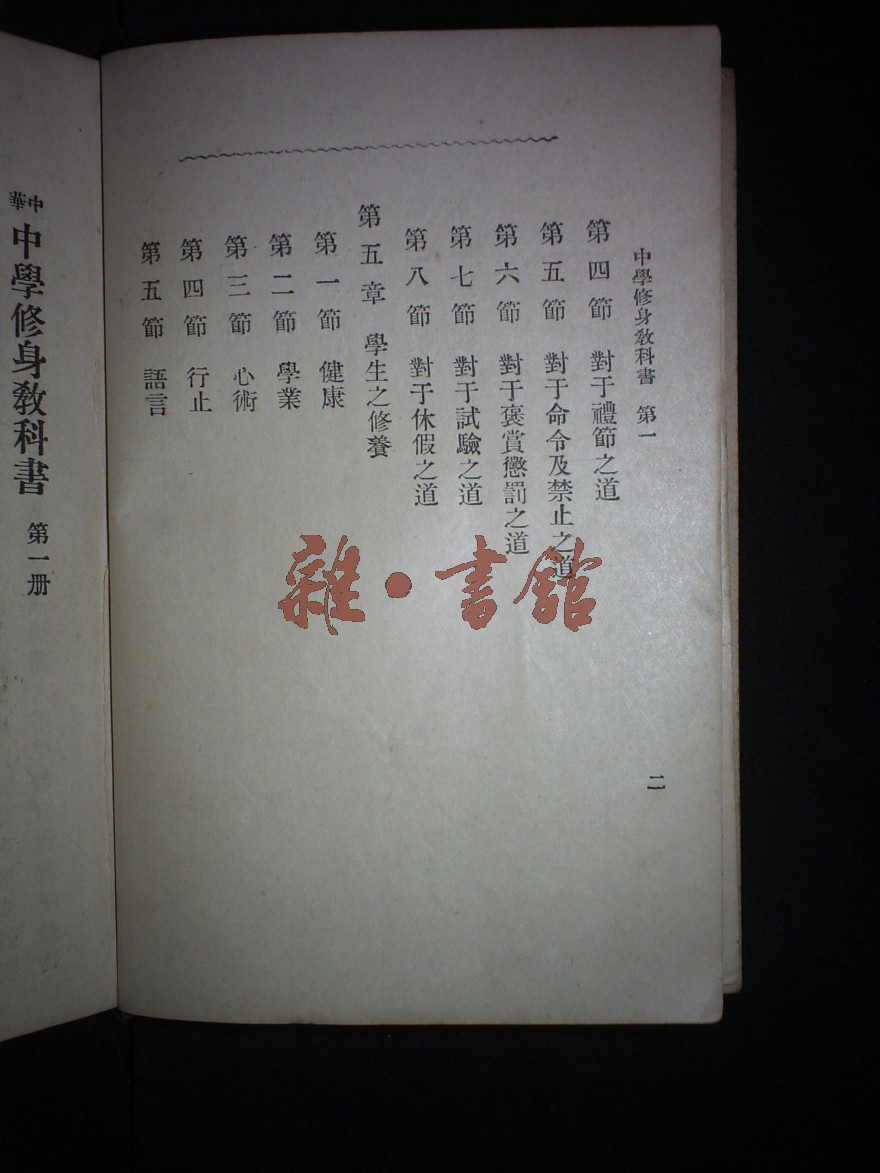 中學修身敎科書　第一
二
第四節　對于禮節之道
第五節　對于命令及禁止之道
第六節　對于褒賞懲罰之道
第七節　對于試驗之道
第八節　對于休假之道
第五章　學生之修養
第一節　健康
第二節　學業
第三節　心術
第四節　行止
第五節　語言
中華中學修身敎科書　第一册
雜·書館